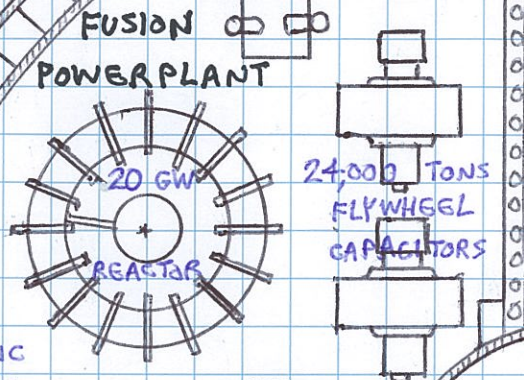 FUSION
POWERPLANT
20 GW
REACTOR
24,000 TONS
FLYWHEEL
CAPACITORS
NC